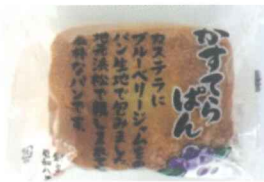 かすてら
ぱん
カステラに
ブルーベリージャムをぬり
パン生地で包みました
地元浜松で親しまれる
素朴なパンです。